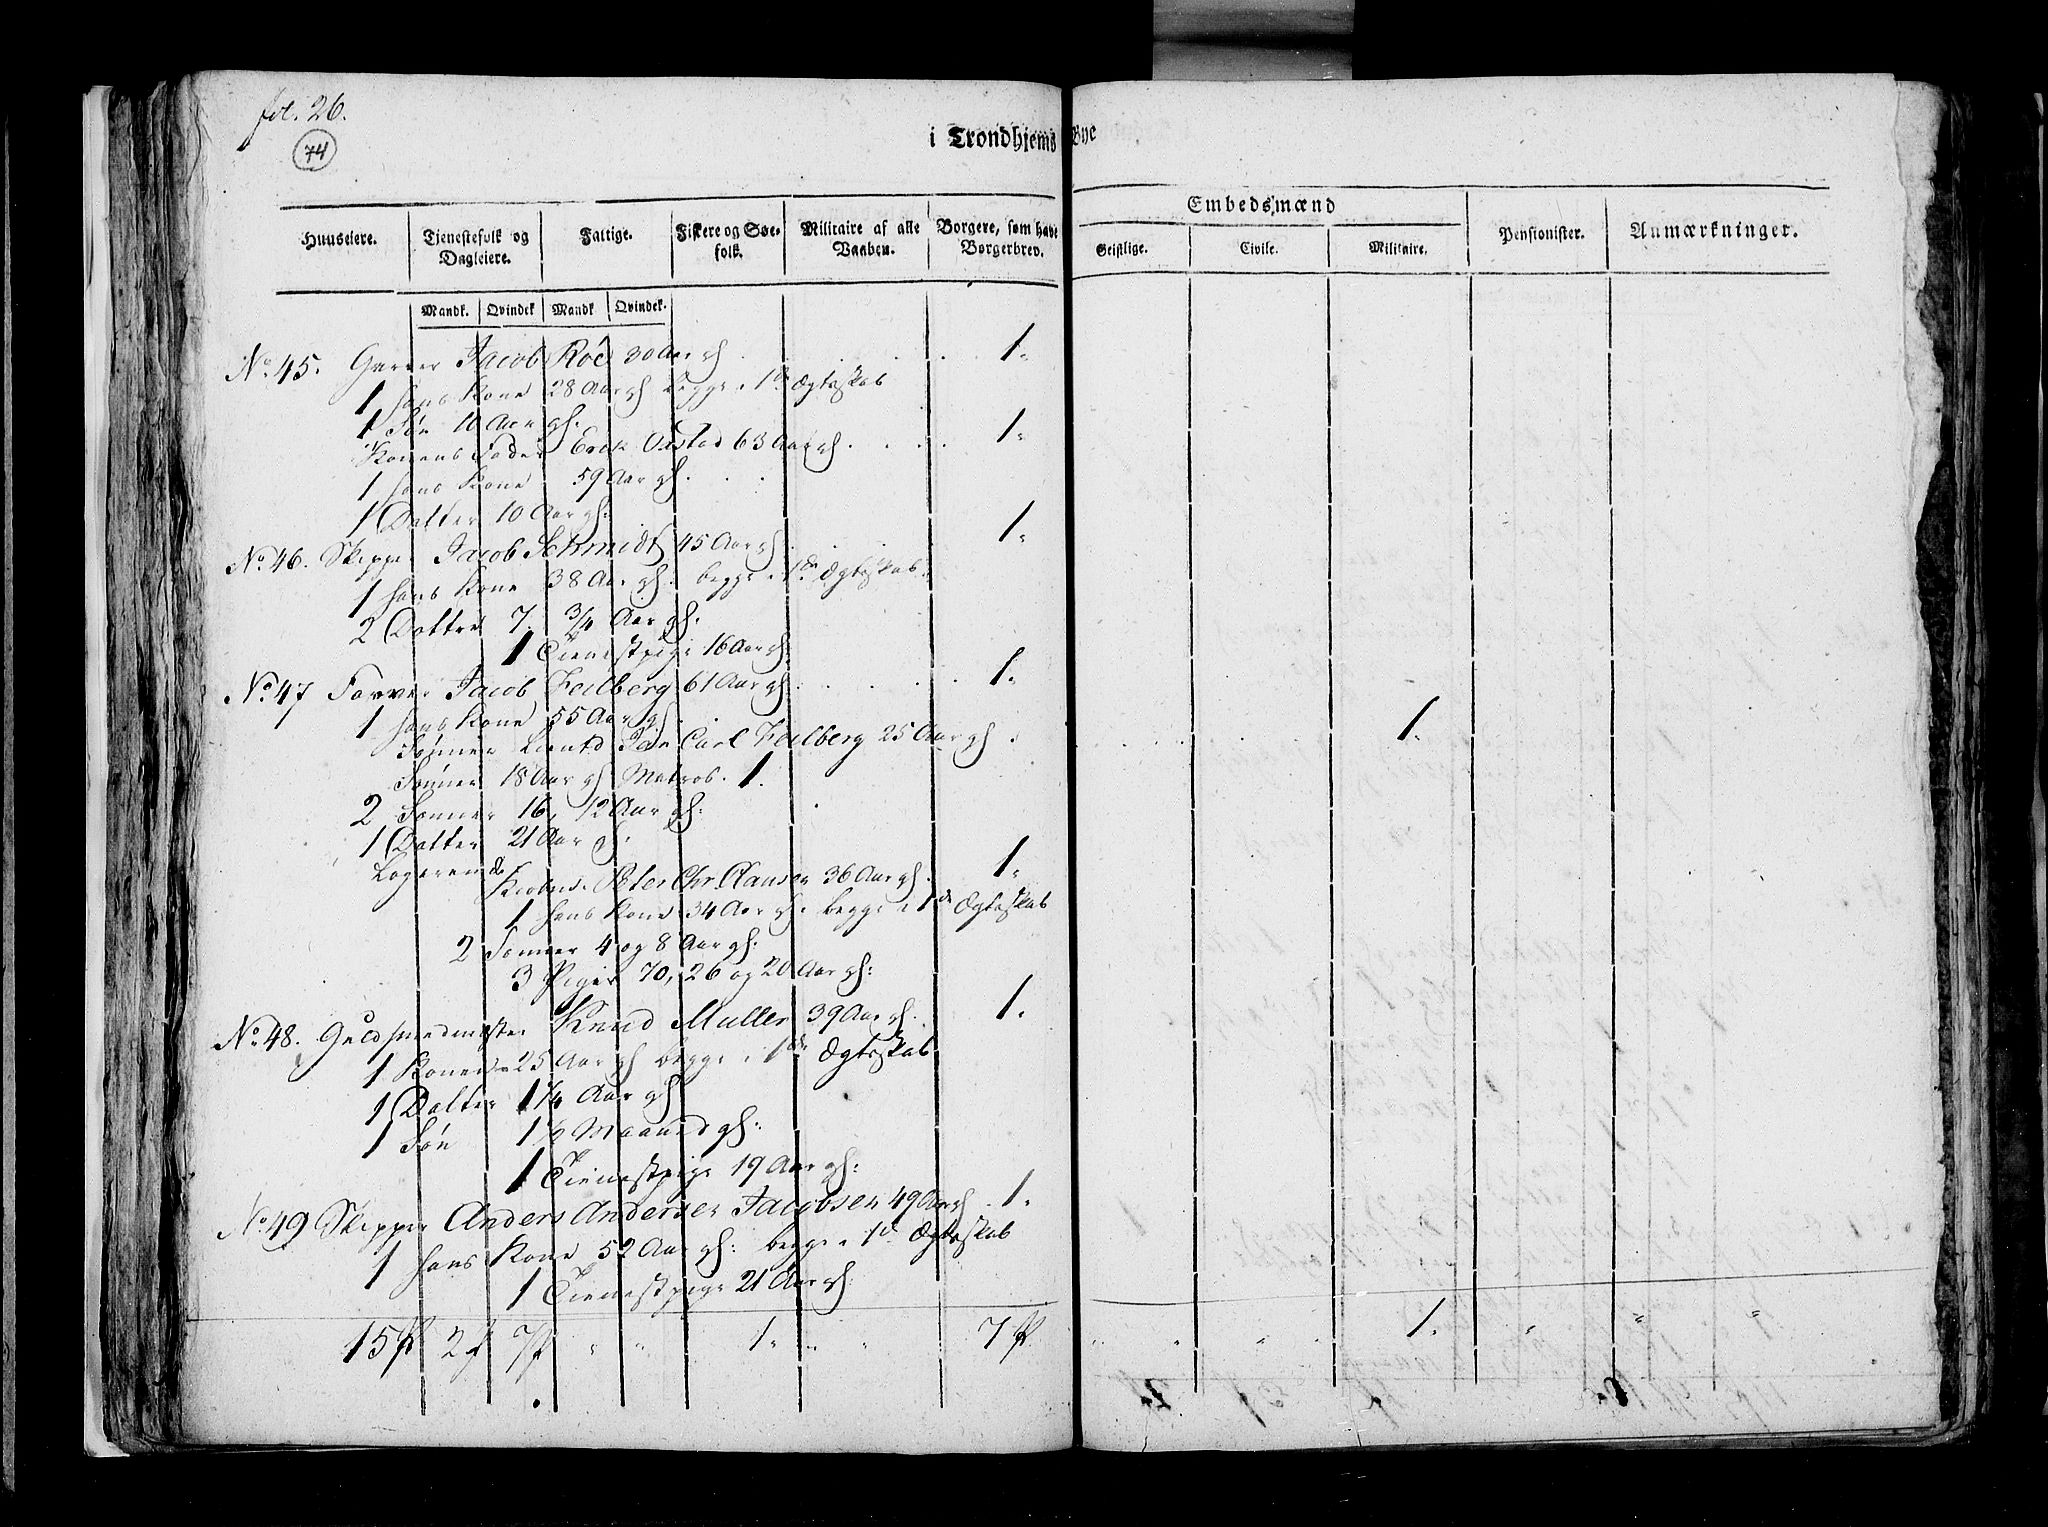 fol. 26.
74
i Trondhjems Bye
Huuseiere. Tjenestefolk og Dagleiere. Fattige. Fiskere og Søefolk. Militaire af alle Vaaben. Borgere, som have Borgerbrev. Embedsmænd Pensionister. Anmærkninger.
Geistlige. Civile. Militaire.
Mandk. Qvindek Mandk Qvindek.
No. 45. Garver Jacob Roe 30 Aar gl. 1.
1 hans Kone 28 Aar gl. begge i 1ste Ægteskab
1 Søn 10 Aar gl.
Konens Fader Erik Oxstad 63 Aar gl. 1.
1 hans Kone 59 Aar gl.
1 Datter 10 Aar gl:
No. 46. Skipper Jacob Schmidt 45 Aar gl. 1.
1 hans Kone 38 Aar gl. begge i 1de Ægteskab.
2 Døttre 7. 3/4 Aar gl:
1 Tienestpige 16 Aar gl:
No. 47 Farver Jacob Feilberg 61 Aar gl. 1.
1 hans Kone 55 Aar gl.
Sønner Lieutd Carl Feilberg 25 Aar gl. 1.
Sønner 18 Aar gl. Matros. 1.
2 Sønner 16, 12 Aar gl:
1 Datter 21 Aar gl.
Logerende
Kiøbm. Peter Chr. Clausen 36 Aar gl. 1.
1 hans Kone 34 Aar gl. begge i 1de Ægteskab
2 Sønner 4 og 8 Aar gl.
3 Piger 70, 26 og 20 Aar gl:
No. 48. Guldsmedmester Knud Muller 39 Aar gl. 1.
1 Kone 25 Aar gl. begge i 1de Ægteskab
1 Datter 1 1/4 Aar gl
1 Søn 1 1/2 Maaned gl:
1 Tienestpige 19 Aar gl:
No. 49 Skipper Anders Andersen Jacobsen 49 Aar gl. 1.
1 hans Kone 52 Aar gl: begge i 1de Ægteskab
1 Tienestpige 21 Aar gl.
15 2 7 " " 1. " " 7 " " " " 1. " " "